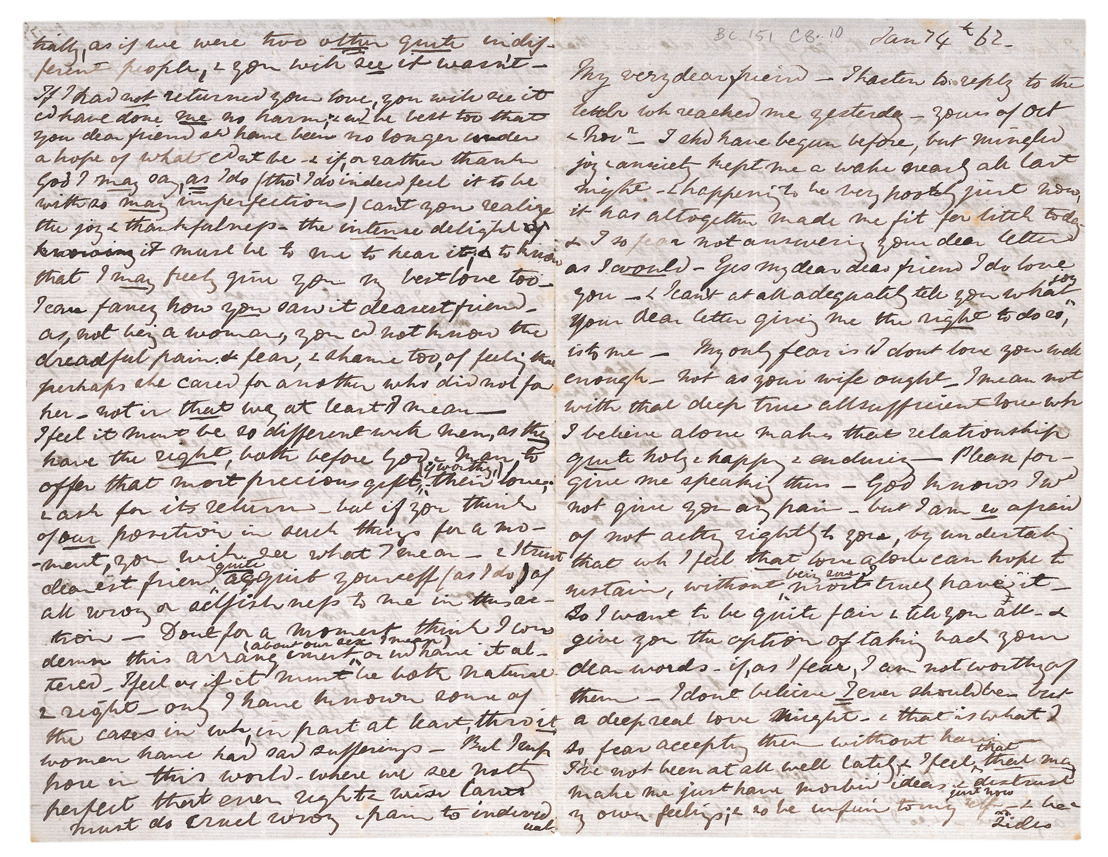 BC 151 C8.10
Jany 4th 62 -
My very dear friend - I hasten to reply to the
letter wh reached me yesterday - yours of Oct
& Novr - I shd have begun before, but mingled
joy & anxiety kept me awake nearly all last
night - & happening to be very poorly just now,
it has altogether made me fit for little today
& I so fear not answering your dear letter
as I would - Yes my dear dear friend I do love
you - & I can't at all adequately tell you what joy
your dear letter giving me the right to do so,
is to me - My only fear is I dont love you well
enough - not as your wife ought - I mean not
with that deep true allsufficient love wh
I believe alone makes that relationship
quite holy & happy & enduring - Please for-
give me speaking thus - God knows I wd
not give you any pain - but I am so afraid
of not acting rightly to you, by undertaking
that wh I feel that love alone can hope to
sustain, without very surely most truly have it -
So I want to be quite fair & tell you all - &
give you the option of taking back your
dear words - if, as I fear, I am not worthy of
them - I dont believe I ever should be - but
a deep real love might - & that is what I
so fear accepting them without having
I've not been at all well lately & I feel that that may
make me just have morbid ideas, & distrust just now
my own feelings, & so be unfair to myself - & bec
sides
trially, as if we were two other quite indif-
ferent people, & you will see it wasn't -
If I had not returned your love, you will see it
cd have done me no harm; & wd be best too that
you dear friend shd have been no longer under
a hope of what cdnt be - & if, or rather thank
God I may say, as I do (tho' I do indeed feel it to be
with so many imperfections) can't you realize
the joy & thankfulness - the intense delight of
knowing it must be to me to hear it, & to know
that I may feel, give you my best love too -
I can fancy how you saw it dearest friend -
as, not being a woman, you cd not know the
dreadful pain & fear, & shame too, of feeling that
perhaps she cared for another who did not for
her - not in that way at least I mean -
I feel it must be so different with men, as they
have the right, both before God & Man to
offer that most precious gift, (if worthy,) their love,
& ask for its return - but if you think
of our position in such things for a mo-
-ment, you will see what I mean - & I trust
dearest friend quite acquit yourself (as I do) of
all wrong or selfishness to me in this ac-
tion - Dont for a moment think I con
demn this arrangement (about our sex, I mean) or wd have it al-
tered - I feel as if it must be both natural
& right - only I have known some of
the cases in wh, in part at least, thro it
women have had sad sufferings - But I sup
pose in this world - where we see nothg
perfect that even right & wise Laws
must do cruel wrong & pain to individ
uals